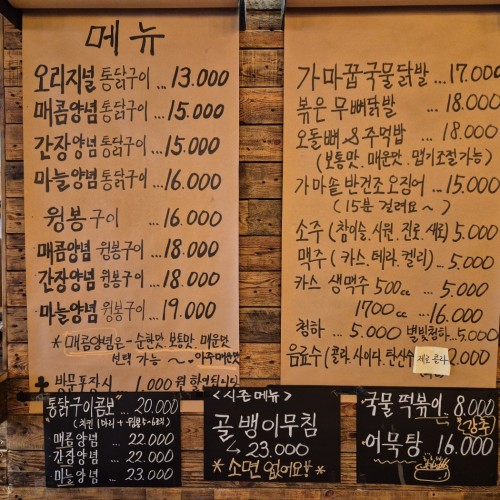 메뉴
오리지널 통닭구이 ... 13.000
매콤양념 통닭구이 ... 15.000
간장양념 통닭구이 ... 15.000
마늘양념 통닭구이 ... 16.000
윙봉구이 ... 16.000
매콤양념 윙봉구이 ... 18.000
간장양념 윙봉구이 ... 18.000
마늘양념 윙봉구이 ... 19.000
*매콤양념은 - 순한맛 보통맛 매운맛
선택 가능 ~ 아주매운맛
방문포장시 1.000원 할인됩니다
가마꿉국물닭발 ... 17.000
볶은 무뼈닭발 ... 18.000
오돌뼈 & 주먹밥 ... 18.000
(보통맛. 매운맛. 맵기조절가능)
가마솥 반건조 오징어 ... 15.000
(15분 걸려요~)
소주 (참이슬.시원.진로.새로) 5.000
맥주 (카스.테라.켈리) ... 5.000
카스 생맥주 500cc ... 5.000
1700cc ... 16.000
청하 ... 5.000 별빛청하 ... 5.000
음료수 (콜라.사이다.탄산수 제로콜라 2.000
통닭구이콤보 ... 20.000
(치킨 1마리 + 윙봉5~6조각)
매콤양념 ... 22.000
간장양념 ... 22.000
마늘양념 ... 23.000
<시즌 메뉴>
골뱅이무침
23.000
*소면 없어요*
국물 떡볶이 8.000
어묵탕 16.000